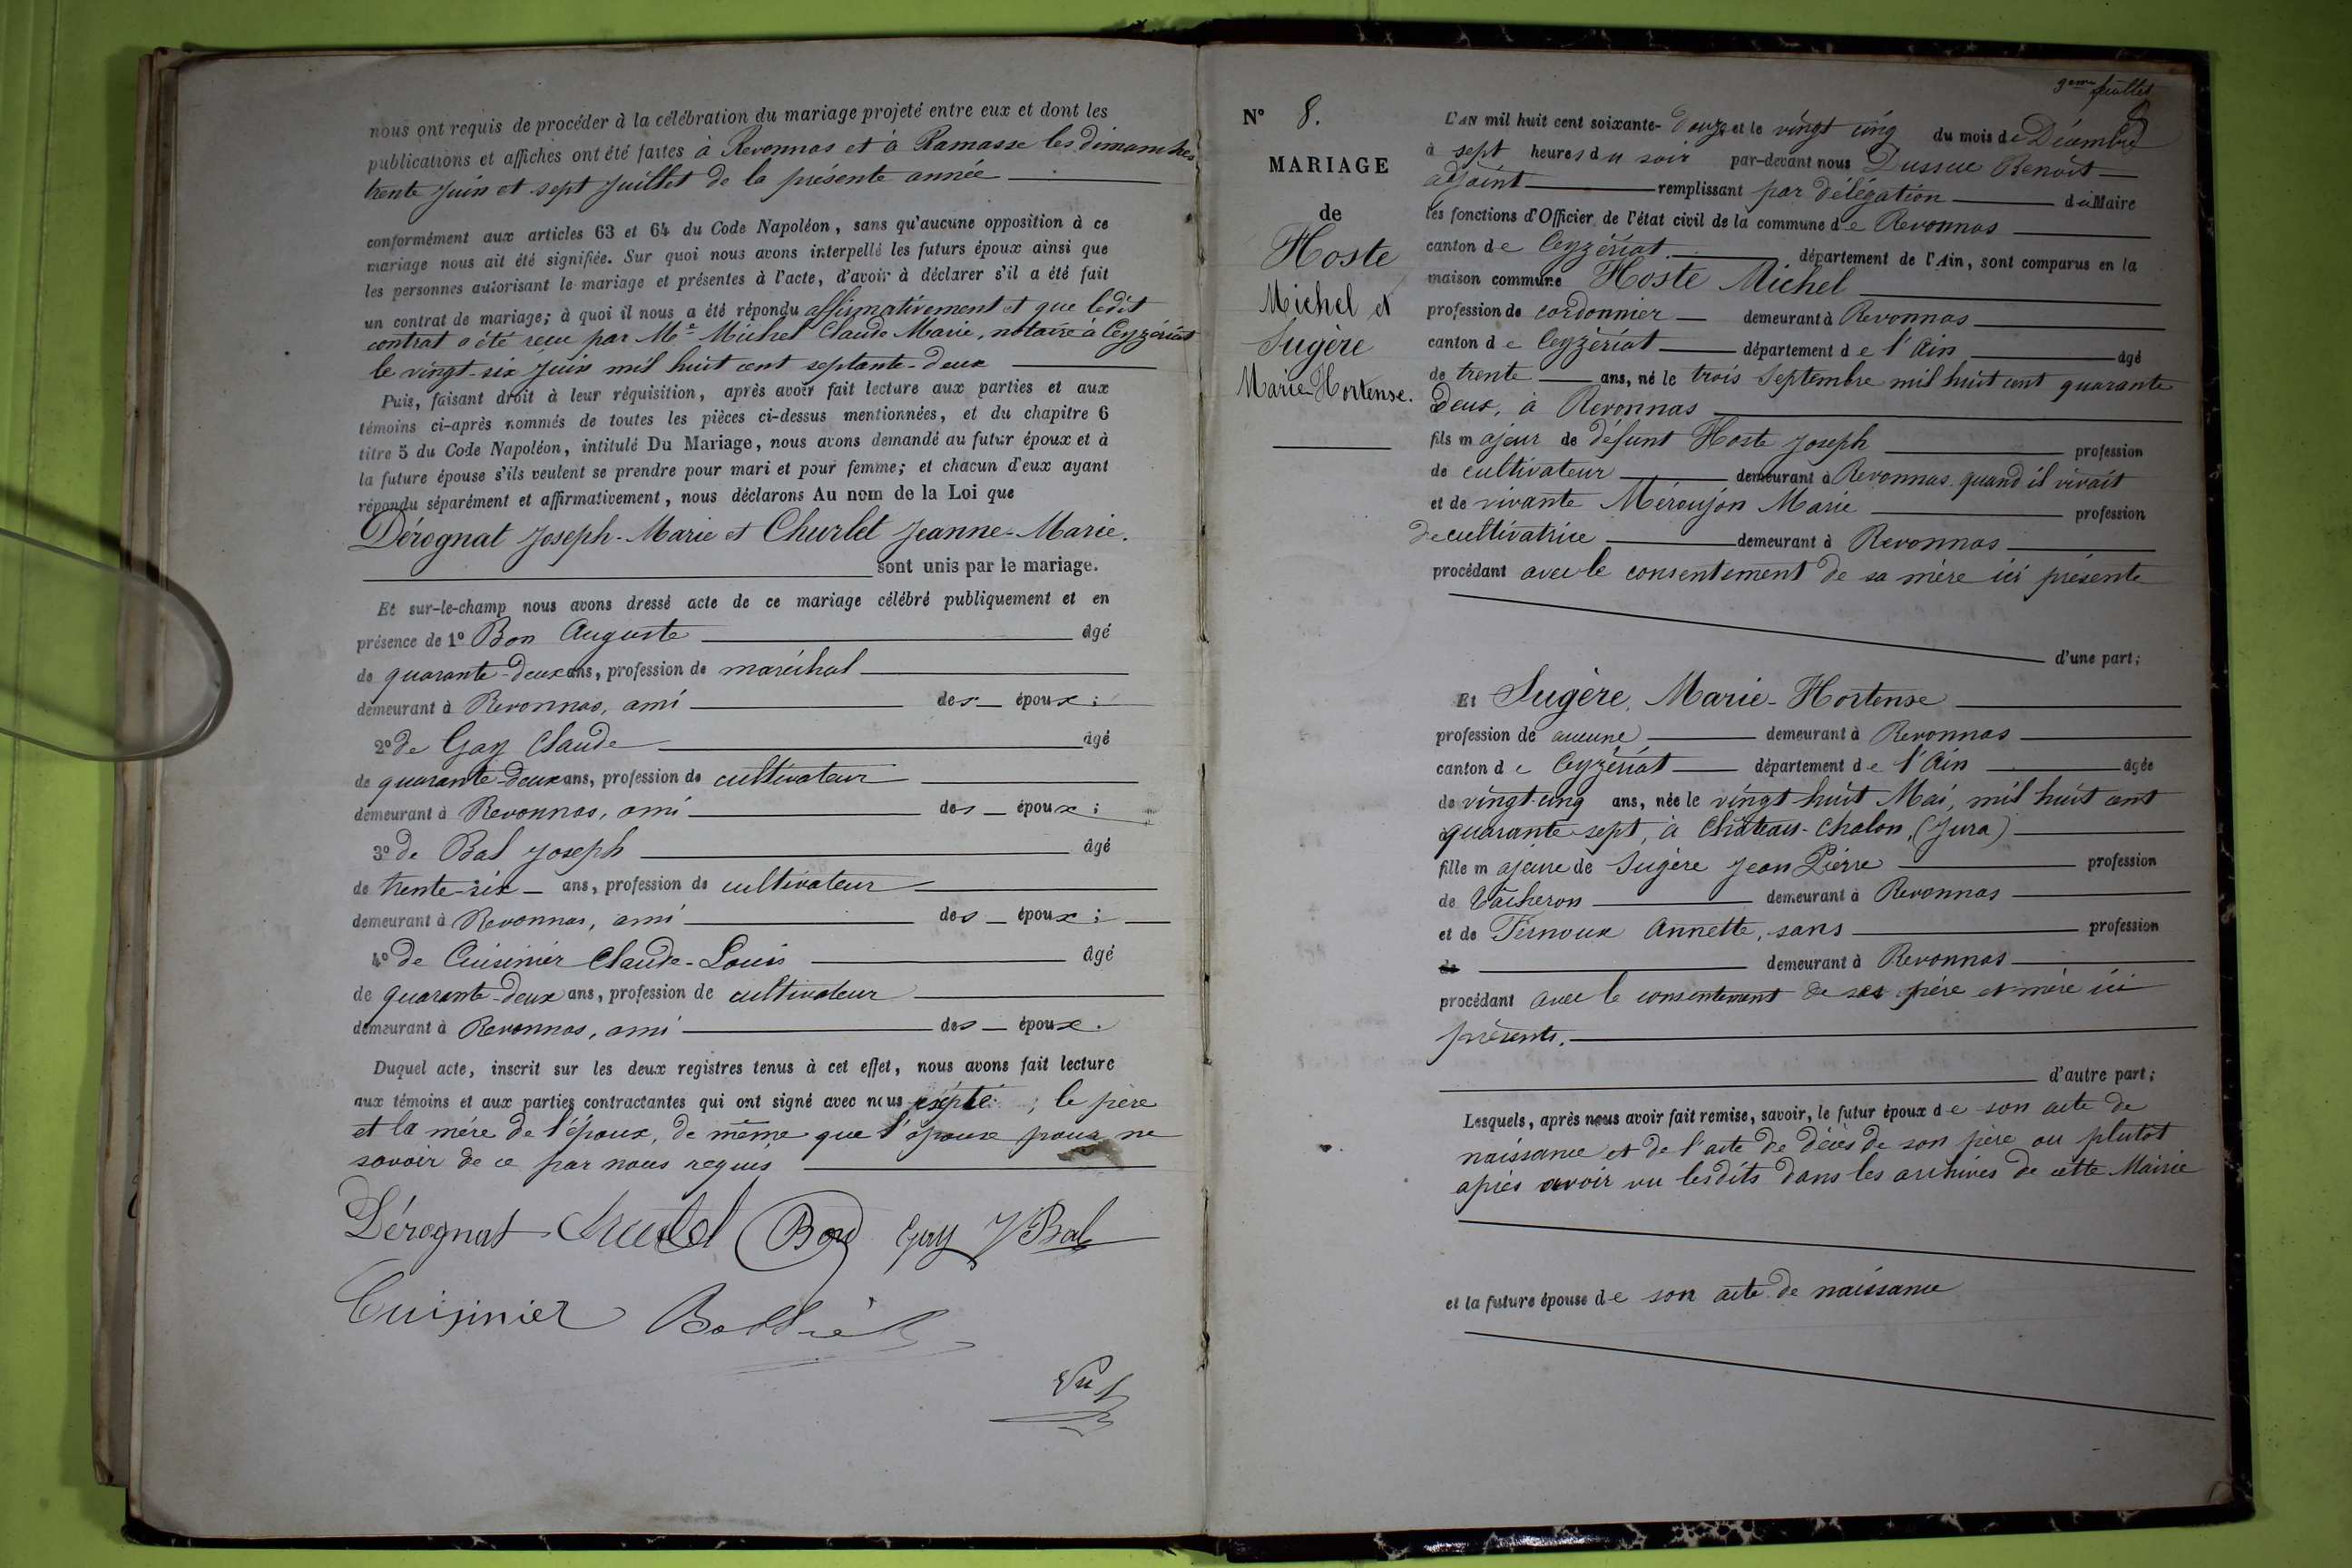 nous ont requis de procéder à la célébration du mariage projeté entre eux et dont les
publications et affiches ont été faites à Revonnas et à Ramasse les dimanches
trente Juin et sept Juillet de la présente année
conformément aux articles 63 et 64 du Code Napoléon, sans qu'aucune opposition à ce
mariage nous ait été signifiée. Sur quoi nous avons interpellé les futurs époux ainsi que
les personnes autorisant le mariage et présentes à l'acte, d'avoir à déclarer s'il a été fait
un contrat de mariage; à quoi il nous a été répondu affirmativement et que ledit
contrat a été reçu par Me Michel Claude Marie, notaire à Ceyzériat
le vingt-six Juin mil huit cent septante-deux
Puis, faisant droit à leur réquisition, après avoir fait lecture aux parties et aux
témoins ci-après nommés de toutes les pièces ci-dessus mentionnées, et du chapitre 6
titre 5 du Code Napoléon, intitulé Du Mariage, nous avons demandé au futur époux et à
la future épouse s'ils veulent se prendre pour mari et pour femme; et chacun d'eux ayant
répondu séparément et affirmativement, nous déclarons Au nom de la Loi que
Dérognat Joseph-Marie et Churlet Jeanne-Marie.
sont unis par le mariage.
Et sur-le-champ nous avons dressé acte de ce mariage célébré publiquement et en
présence de 1º Bon Auguste âgé
de quarante-deux ans, profession de maréchal
demeurant à Revonnas, ami des époux;
2º de Gay Claude âgé
de quarante-deux ans, profession de cultivateur
demeurant à Revonnas, ami des époux;
3º de Bal Joseph âgé
de trente-six ans, profession de cultivateur
demeurant à Revonnas, ami des époux;
4º de Cuisinier Claude-Louis âgé
de quarante-deux ans, profession de cultivateur
demeurant à Revonnas, ami des époux.
Duquel acte, inscrit sur les deux registres tenus à cet effet, nous avons fait lecture
aux témoins et aux parties contractantes qui ont signé avec nous ; le père
et la mère de l'époux, de même que l'épouse pour ne
savoir de ce par nous requis
Dérognat Bon Gay J Bal
Cuisinier
Vu
9eme feuillet
Nº 8.
MARIAGE
de
Hoste
Michel et
Sugère
Marie-Hortense.
L'AN mil huit cent soixante-douze et le vingt cinq du mois de Décembre
à sept heures du soir par-devant nous Dussuc Benoit
adjoint remplissant par délégation du Maire
les fonctions d'Officier de l'état civil de la commune de Revonnas
canton de Ceyzériat département de l'Ain, sont comparus en la
maison commune Hoste Michel
profession de cordonnier demeurant à Revonnas
canton de Ceyzériat département de l'Ain âgé
de trente ans, né le trois Septembre mil huit cent quarante
deux, à Revonnas
fils majeur de défunt Hoste Joseph profession
de cultivateur demeurant à Revonnas quand il vivait
et de vivante Méroujon Marie profession
de cultivatrice demeurant à Revonnas
procédant avec le consentement de sa mère ici présente
d'une part;
Et Sugère, Marie-Hortense
profession de aucune demeurant à Revonnas
canton de Ceyzériat département de l'Ain âgée
de vingt-cinq ans, née le vingt huit Mai, mil huit cent
quarante-sept, à Château-Chalon, (Jura)
fille majeure de Sugère Jean Pierre profession
de Vacheron demeurant à Revonnas
et de Fernoux Annette, sans profession
de demeurant à Revonnas
procédant avec le consentement de ses père et mère ici
présents.
d'autre part;
Lesquels, après nous avoir fait remise, savoir, le futur époux de son acte de
naissance et de l'acte de décès de son père ou plutôt
après avoir vu lesdits dans les archives de cette Mairie
et la future épouse de son acte de naissance